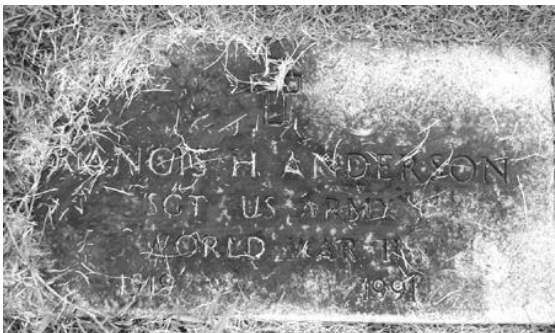 FRANCIS H ANDERSON
SGT US ARMY
WORLD WAR II
1919 1991